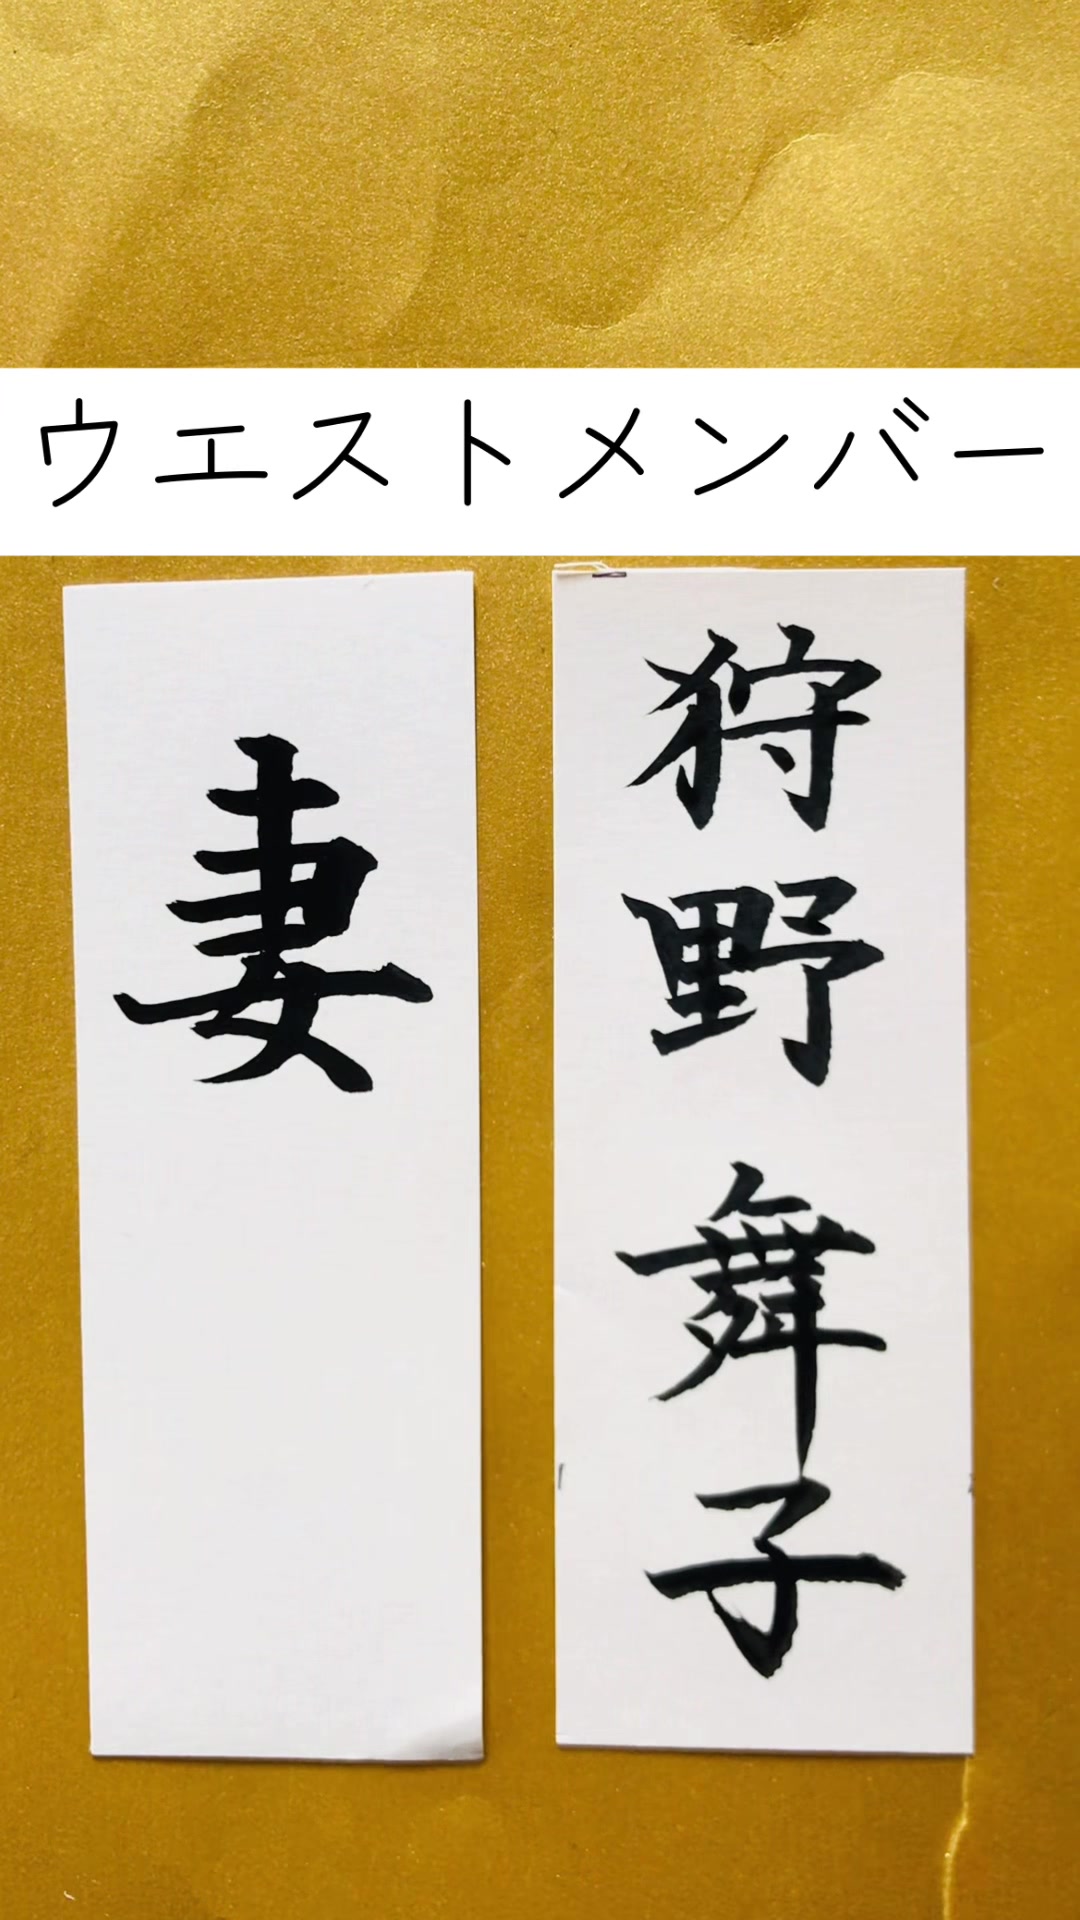 ウエストメンバー
狩野舞子
妻